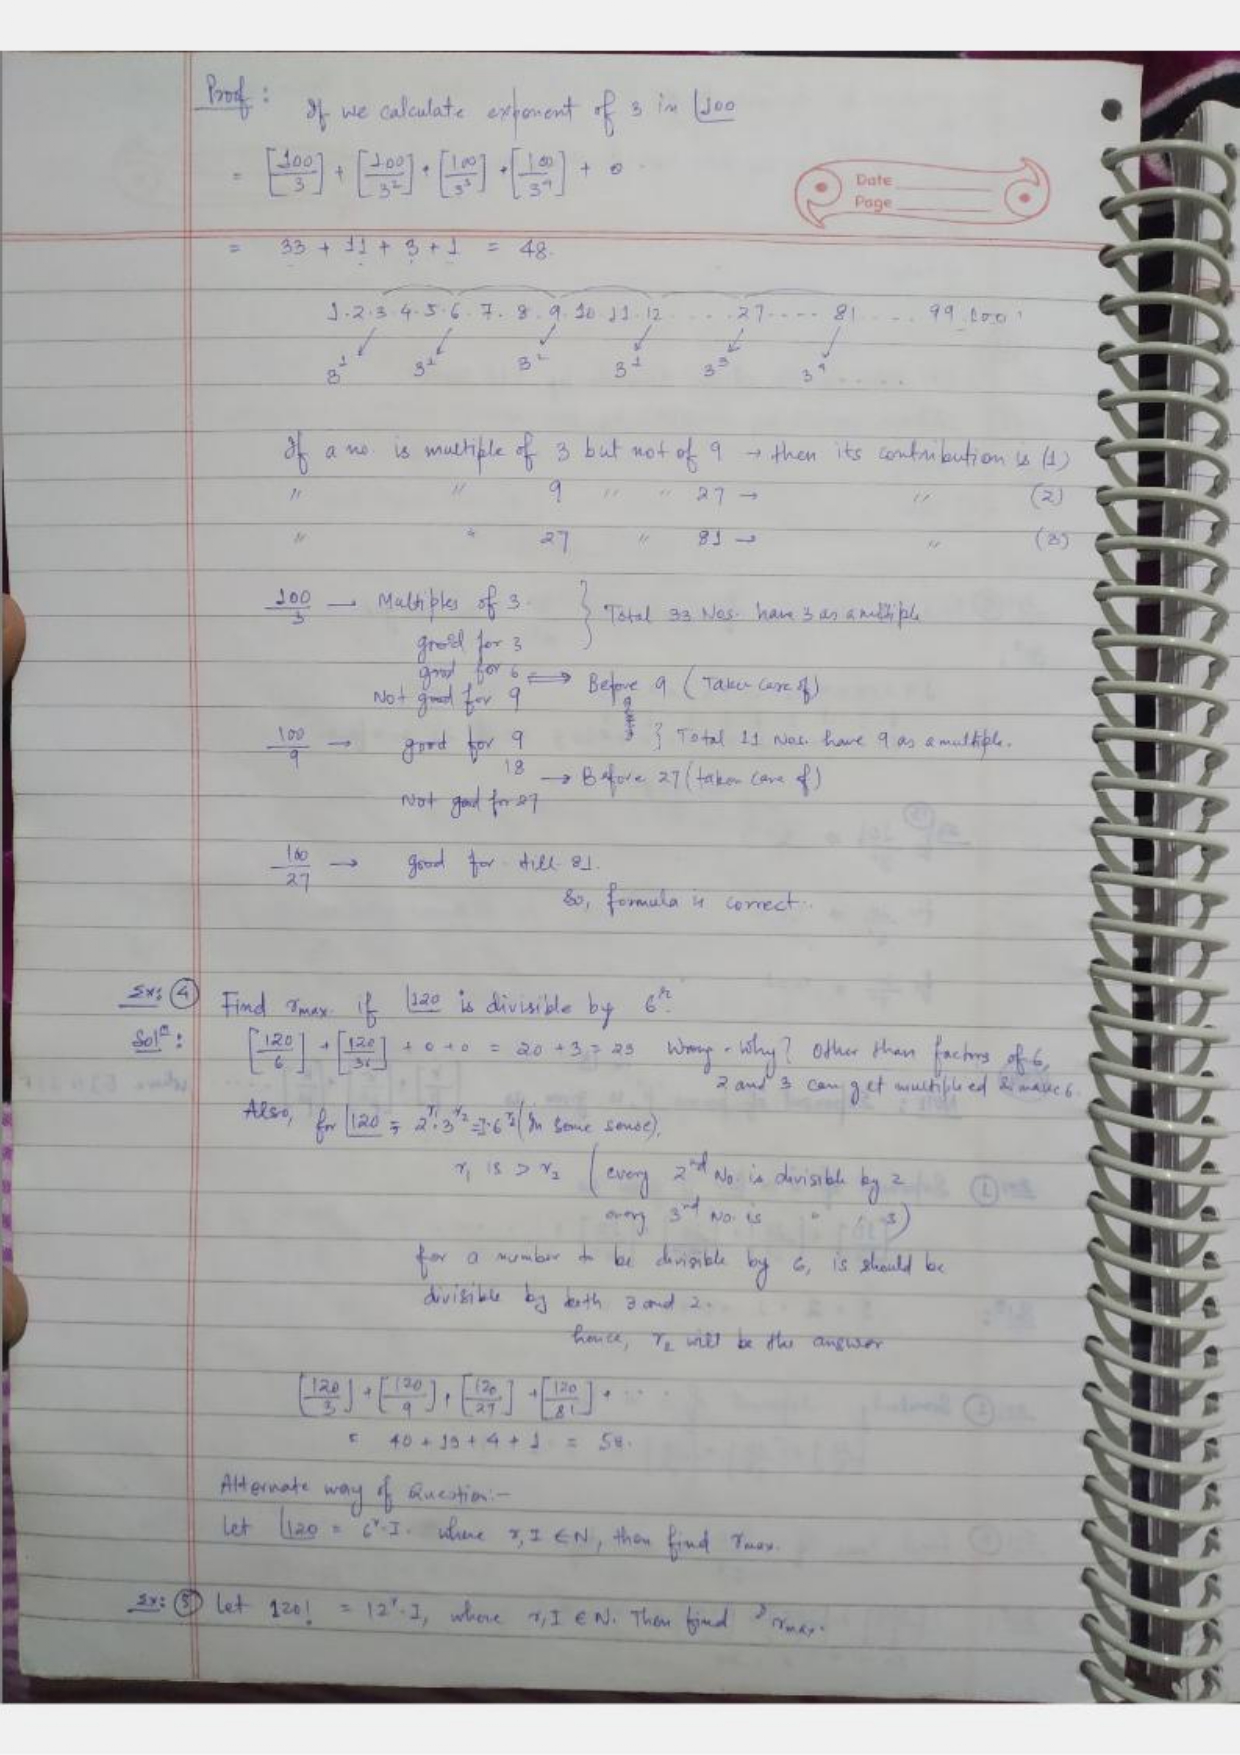 Proof : If we calculate exponent of 3 in ⌊100
= [100/3] + [100/3²] + [100/3³] + [100/3⁴] + 0
Date
Page
= 33 + 11 + 3 + 1 = 48.
1·2·3·4·5·6·7·8·9·10·11·12 .... 27 .... 81 .... 99 100
3¹ 3¹ 3² 3¹ 3³ 3⁴ ....
If a no. is multiple of 3 but not of 9 → then its contribution is (1)
" " 9 " " 27 → " (2)
" " 27 " 81 → " (3)
100/3 → Multiples of 3 } Total 33 Nos. have 3 as a multiple
good for 3
good for 6
Not good for 9 ⟺ Before 9 (Taken care of)
100/9 → good for 9 } Total 11 Nos. have 9 as a multiple.
18 → Before 27 (taken care of)
Not good for 27
100/27 → good for till 81.
So, formula is correct.
Ex: ④ Find rmax. if ⌊120 is divisible by 6ʳ.
Solⁿ: [120/6] + [120/36] + 0 + 0 = 20 + 3 = 23 Wrong - Why? Other than factors of 6,
2 and 3 can get multiplied & make 6.
Also, for ⌊120 = (In some sense),
r₁ is > r₂ (every 2nd No. is divisible by 2
every 3rd No. is " " 3)
for a number to be divisible by 6, is should be
divisible by both 3 and 2.
hence, r₂ will be the answer
[120/3] + [120/9] + [120/27] + [120/81] + ..
= 40 + 13 + 4 + 1 = 58.
Alternate way of Question:-
Let ⌊120 = 6ʳ·I. where r, I ∈ N, then find rmax.
Ex: ⑤ Let 120! = 12ʳ·I, where r, I ∈ N. Then find rmax.